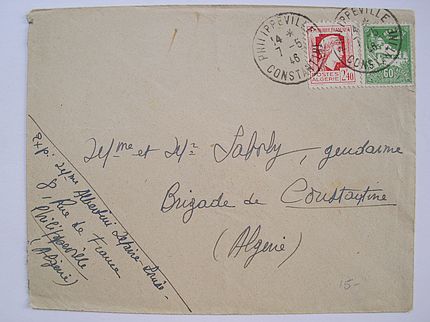 PHILIPPEVILLE
14 *
7 -5
46
CONSTANTINE
PHILIPPEVILLE
CONSTANTINE
POSTES
ALGERIE
2F40
60c
Mme et Mr Laboly, gendarme
Brigade de Constantine
(Algérie)
Exp. Mme Albertini
8 Rue de France
Philippeville
(Algérie)
15-